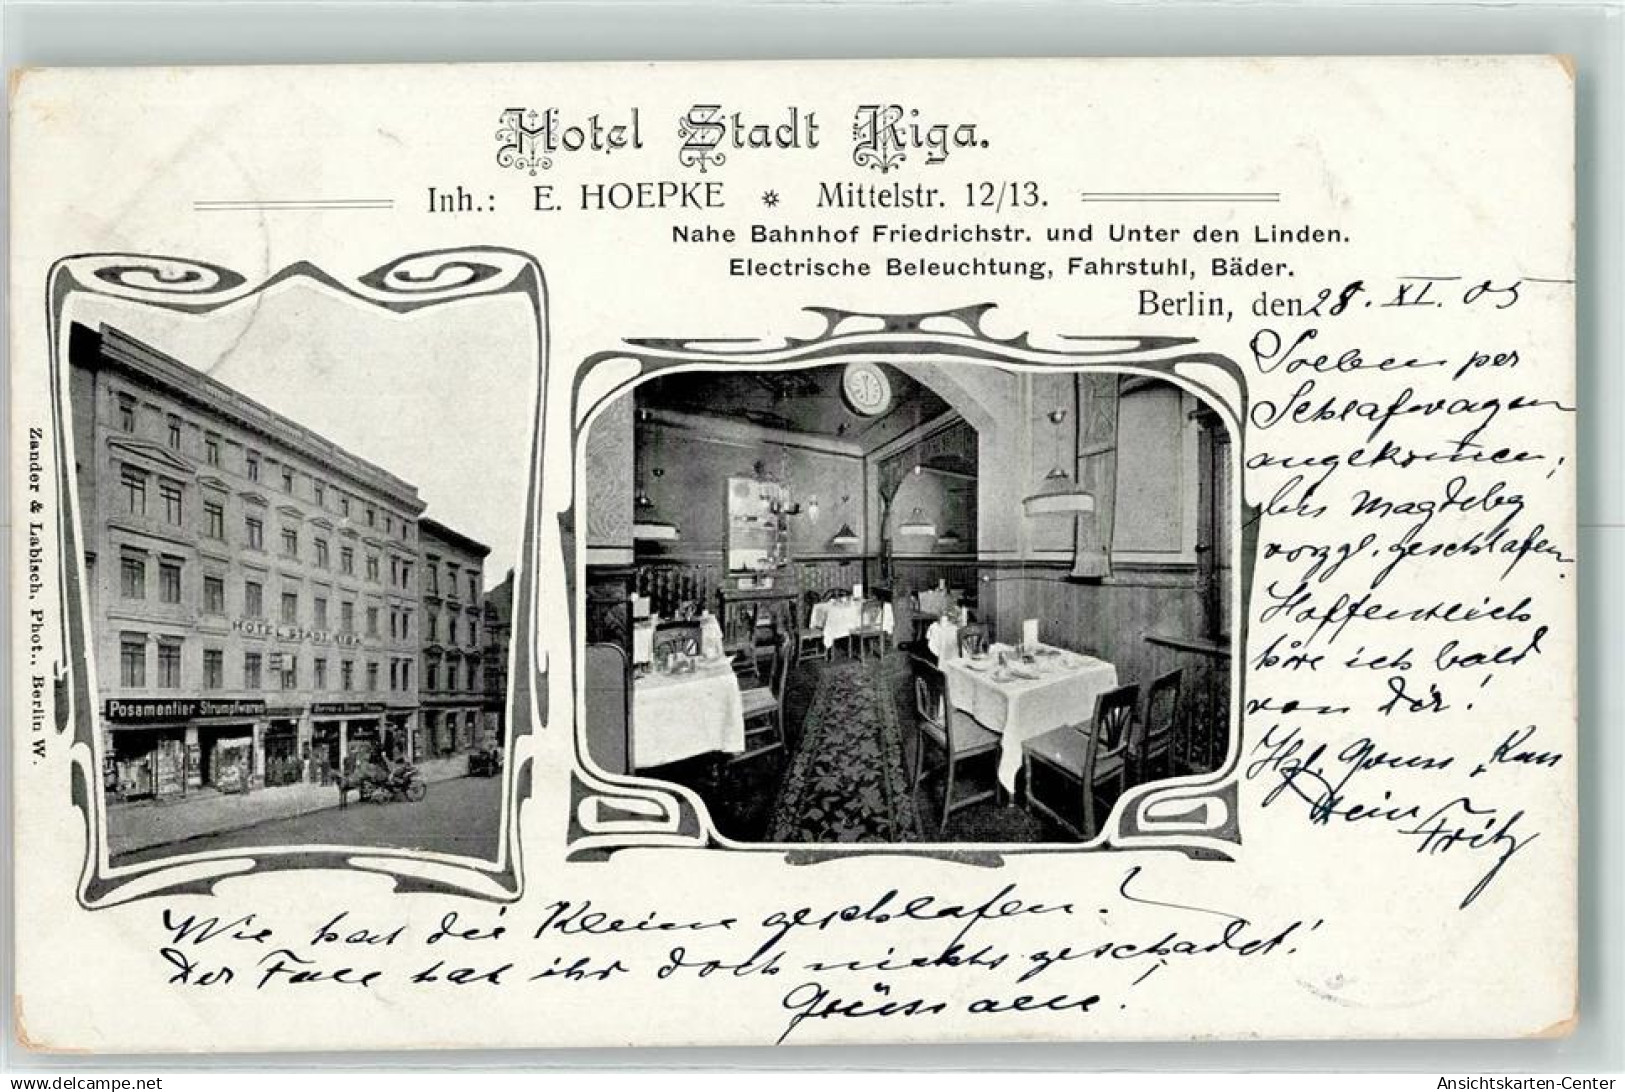 Hotel Stadt Riga.
Inh.: E. HOEPKE * Mittelstr. 12/13.
Nahe Bahnhof Friedrichstr. und Unter den Linden.
Electrische Beleuchtung, Fahrstuhl, Bäder.
Berlin, den 28. XI. 05
Soeben per
Schlafwagen
angekommen,
bis Magdebg
vorzgl. geschlafen.
Hoffentlich
höre ich bald
von Dir!
Hzl. Gruss
Dein Fritz
Wie hat die Kleine geschlafen?
Der Fall hat ihr doch nichts geschadet!
Grüss alle!
HOTEL STADT RIGA
Posamentier Strumpfwaren
Zander & Labisch, Phot., Berlin W.
www.delcampe.net
Ansichtskarten-Center